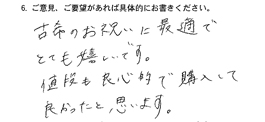 6. ご意見、ご要望があれば具体的にお書きください。
古希のお祝いに最適で
とても嬉しいです。
値段も良心的で購入して
良かったと思います。